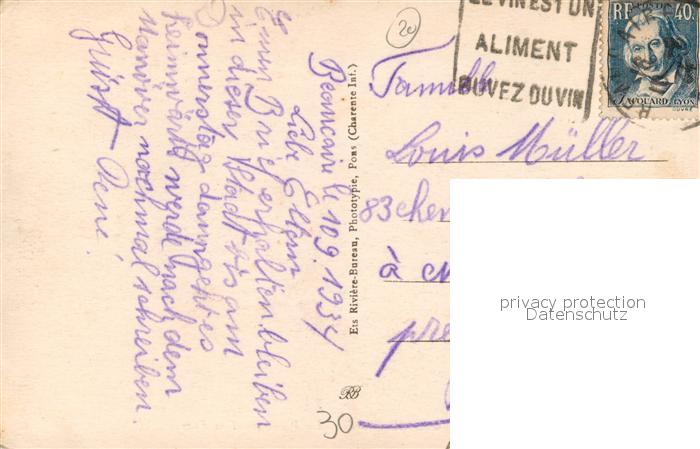 LE VIN EST UN
ALIMENT
BUVEZ DU VIN
RF 40
JACQUARD LYON
20
Beaucaire le 10 9. 1934
Liebe Eltern
Euer Brief erhalten. bleiben
in dieser Stadt bis am
Donnerstag dann geht es
heimwärts werde nach dem
Manöver nochmal schreiben.
Gruss René
Ets Rivière-Bureau, Phototypie, Pons (Charente Inf.)
Famille
Louis Müller
83 che
à
pre
RB
30
privacy protection
Datenschutz